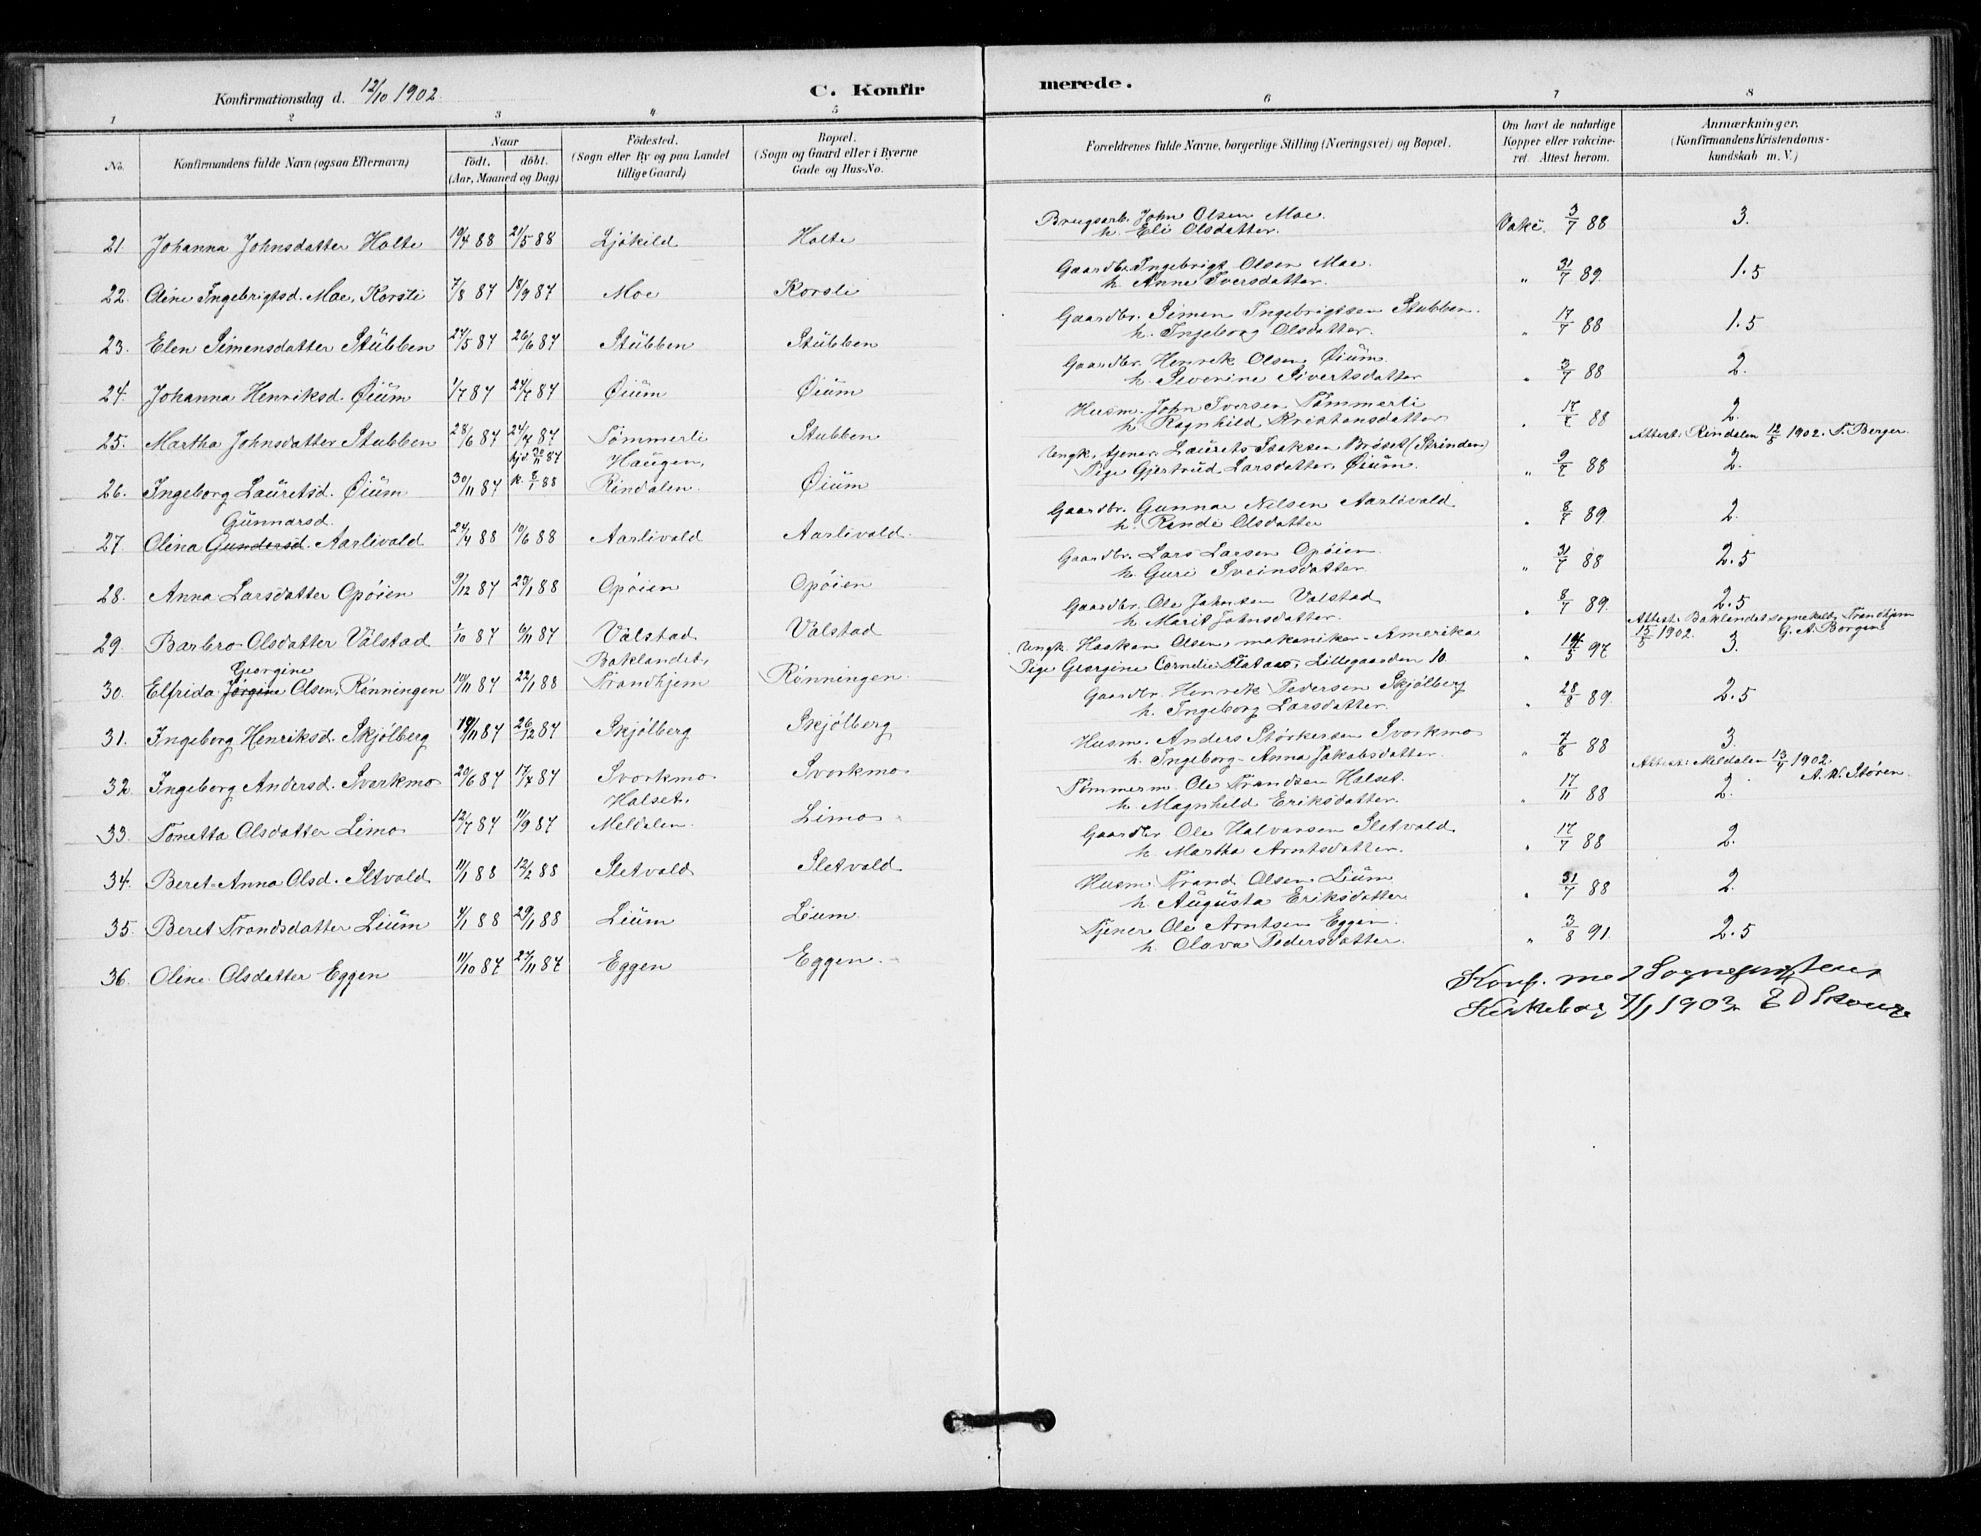 Konfirmationsdag d. 12/10 1902. C. Konfirmerede.
1 2 3 4 5 6 7 8
No. Konfirmandens fulde Navn (ogsaa Efternavn) Naar født. døbt. (Aar, Maaned og Dag) Fødested. (Sogn eller By og paa Landet tillige Gaard) Bopæl. (Sogn og Gaard eller i Byerne Gade og Hus-No. Forældrenes fulde Navne, borgerlige Stilling (Næringsvei) og Bopæl. Om havt de naturlige Kopper eller vakcineret. Attest herom. Anmærkninger. (Konfirmandens Kristendomskundskab m. V.)
21. Johanna Johnsdatter Holte 19/4 88 21/5 88 Ljøkild Holte Brugsarb. John Olsen Moe. h. Eli Olsdatter. Vakc. 3/7 88 3.
22. Oline Ingebrigtsd. Moe, Korsli 7/8 87 18/9 87 Moe Korsli Gaardbr. Ingebrigt Olsen Moe. h. Anne Iversdatter. " 31/7 89. 1.5
23. Elen Simensdatter Stubben 24/5 87 26/6 87 Stubben Stubben Gaardbr. Simen Ingebrigtsen Stubben. h. Ingeborg Olsdatter. " 17/7 88 1.5
24. Johanna Henriksd. Øium 1/7 87 24/7 87 Øium Øium Gaardbr. Henrik Olsen Øium. h. Severine Sivertsdatter " 3/7 88 2.
25. Martha Johnsdatter Stubben 28/6 87 24/7 87 Tømmerli Stubben Husm. John Iversen Tømmerli h. Ragnhild Kristensdatter " 17/7 88 2.
Attest: Rindalen 12/8 1902. T. Berger.
26. Ingeborg Lauretsd. Øium 30/11 87 hjd. 30/11 87 k. 8/1 88 Haugen, Rindalen. Øium Ungk. tjener Laurets Isaksen Brøset (Strinden) Pige Gjertrud Larsdatter, Øium. " 9/7 88 2.
27. Olina Gundersd. Gunnarsd. Aarlivold 24/4 88 10/6 88 Aarlivold Aarlivold. Gaardbr. Gunnar Nilsen Aarlivold h. Randi Olsdatter " 8/7 89. 2.
28. Anna Larsdatter Opøien 9/12 87 29/1 88 Opøien Opøien Gaardbr. Lars Larsen Opøien. h. Guri Sveinsdatter " 31/7 88 2.5
29. Barbro Olsdatter Valstad 1/10 87 6/11 87 Valstad Valstad Gaardbr. Ole Johnsen Valstad h. Marit Johnsdatter. " 8/7 89. 2.5
Attest: Baklandet sognekald, Trondhjem 15/8 1902. G. A. Borgen.
30. Elfrida Jørgine Georgine Olsen, Rønningen 10/11 87 22/1 88 Baklandet, Trondhjem Rønningen. Ungk. Haakon Olsen, mekaniker - Amerika Pige Georgine Cornelie Flataas, Lillegaarden 10. " 14/5 97 3.
31. Ingeborg Henriksd. Skjølberg 19/11 87 26/12 87 Skjølberg Skjølberg Gaardbr. Henrik Pedersen Skjølberg h. Ingeborg Larsdatter. " 28/8 89. 2.5
32. Ingeborg Andersd. Svorkmo 20/6 87 17/7 87 Svorkmo Svorkmo Husm. Anders Størkersen Svorkmo h. Ingeborg-Anna Jakobsdatter. " 7/8 88 3.
Attest: Meldalen 13/9 1902. A. W. Støren.
33. Tonetta Olsdatter Limo 12/7 87 11/9 87 Halset, Meldalen. Limo Tømmerm. Ole Trondsen Halset. h. Magnhild Eriksdatter. " 17/11 88 2.
34. Beret-Anna Olsd. Sletvold 11/1 88 12/2 88 Sletvold Sletvold Gaardbr. Ole Halvorsen Sletvold h. Martha Arntsdatter. " 17/7 88 2.
35. Beret Trondsdatter Lium 4/1 88 29/1 88 Lium Lium Husm. Trond Olsen Lium h. Augusta Eriksdatter " 31/7 88 2.
36. Oline Olsdatter Eggen 11/10 87 27/11 87 Eggen Eggen. Tjener Ole Arntsen Eggen. h. Olava Pedersdatter. " 3/8 91. 2.5
Konf. med Sogneprestens
Kirkebog 7/1 1903